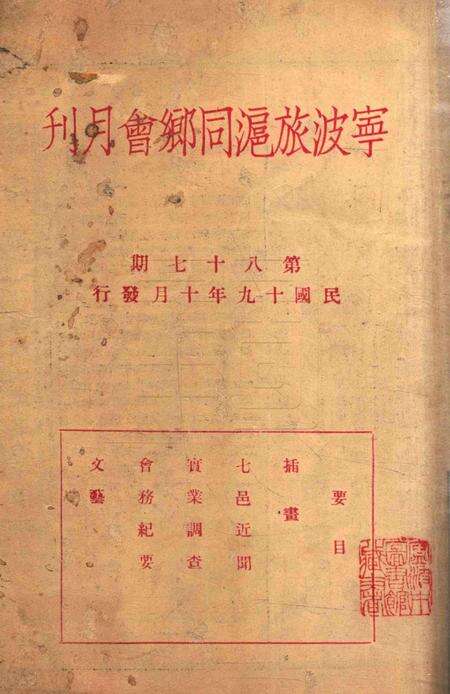 寧波旅滬同鄉會月刊
第八十七期
民國十九年十月發行
要目
插畫
七邑近聞
實業調查
會務紀要
文藝